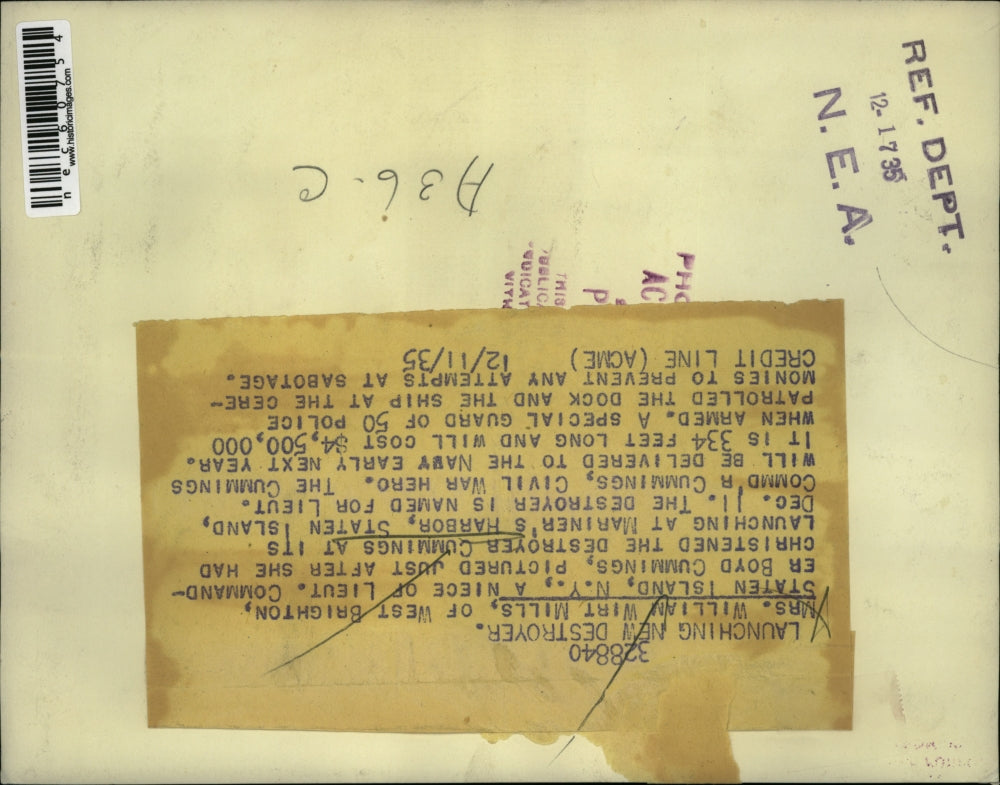 328840
LAUNCHING NEW DESTROYER.
MRS. WILLIAM WIRT MILLS, OF WEST BRIGHTON,
STATEN ISLAND, N.Y., A NIECE OF LIEUT. COMMAND-
ER BOYD CUMMINGS, PICTURED JUST AFTER SHE HAD
CHRISTENED THE DESTROYER CUMMINGS AT ITS
LAUNCHING AT MARINER'S HARBOR, STATEN ISLAND,
DEC. 11. THE DESTROYER IS NAMED FOR LIEUT.
COMMD'R CUMMINGS, CIVIL WAR HERO. THE CUMMINGS
WILL BE DELIVERED TO THE NAVY EARLY NEXT YEAR.
IT IS 334 FEET LONG AND WILL COST $4,500,000
WHEN ARMED. A SPECIAL GUARD OF 50 POLICE
PATROLLED THE DOCK AND THE SHIP AT THE CERE-
MONIES TO PREVENT ANY ATTEMPTS AT SABOTAGE.
CREDIT LINE (ACME) 12/11/35
A36-C
REF. DEPT.
12-17 35
N. E. A.
PHO
AC
P
THIS
nec60754
www.historicimages.com